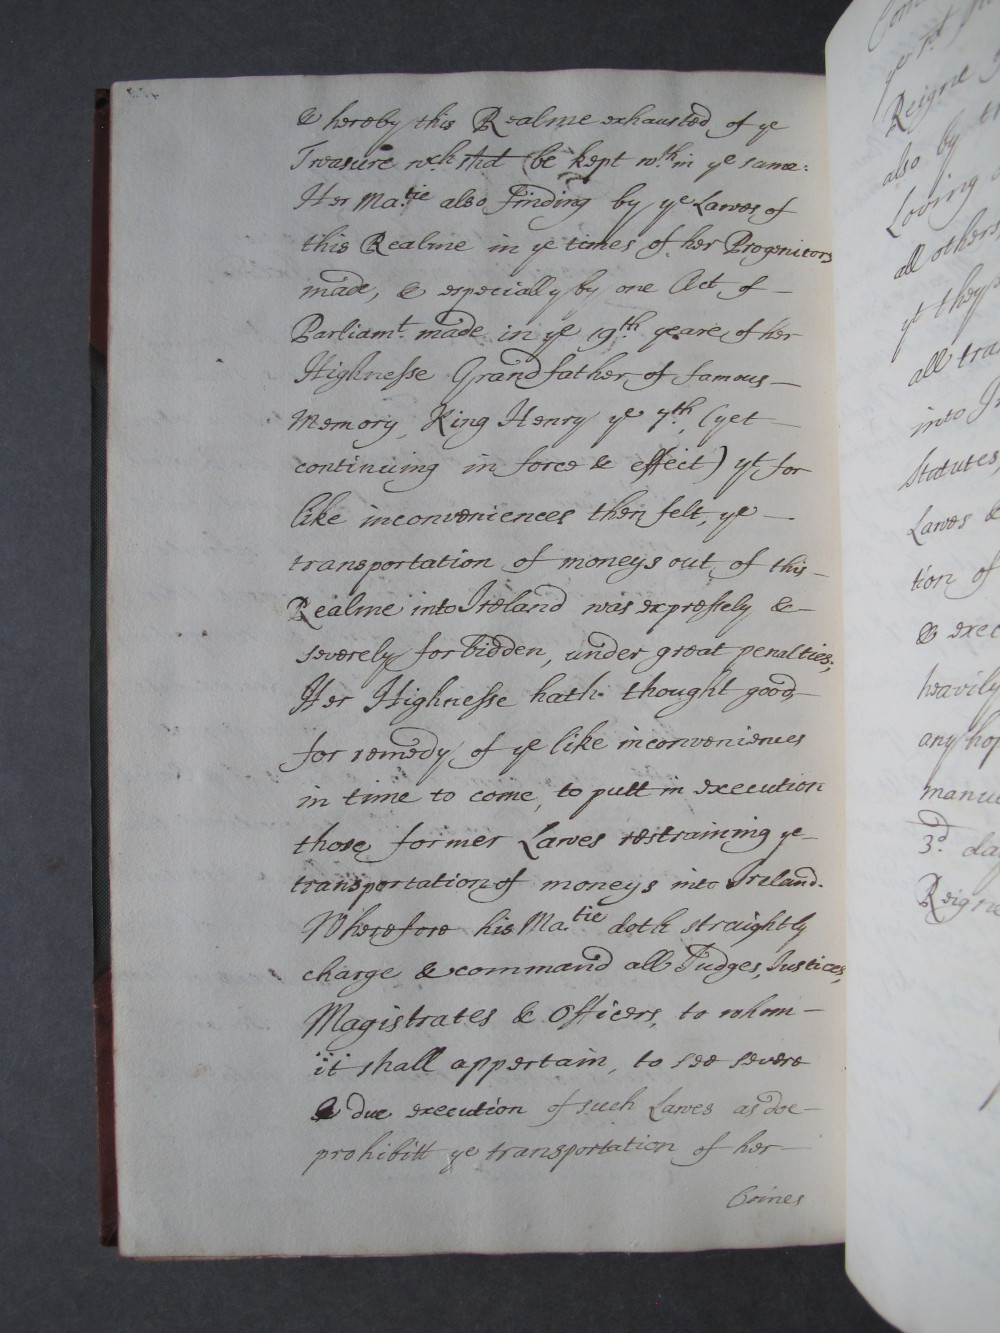 & hereby this Realme exhausted of ye
Treasure wch shd be kept wth in ye same:
Her Matie also Finding by ye Lawes of
this Realme in ye times of her Progenitors
made, & especially by one Act of —
Parliamt. made in ye 19th yeare of her
Highnesse Grandfather of famous —
Memory, King Henry ye 7th, (yet —
continuing in force & effect) yt for
like inconveniences then felt, ye —
transportation of moneys out of this —
Realme into Ireland was expressely & —
severely forbidden, under great penalties;
Her Highnesse hath thought good —
for remedy of ye like inconveniences
in time to come, to putt in execution
those former Lawes restraining ye —
transportation of moneys into Ireland.
Wherefore his Matie doth straightly
charge & command all Judges, Justices,
Magistrates & Officers, to whom —
it shall appertain, to see severe
& due execution of such Lawes as doe —
prohibitt ye transportation of her —
Coines
Reigne
also by
Loving
all others
yt they
all tra
into Ir
Statutes
Lawes &
tion of
& exec
heavily
any hop
manu
3d. day
Reigne